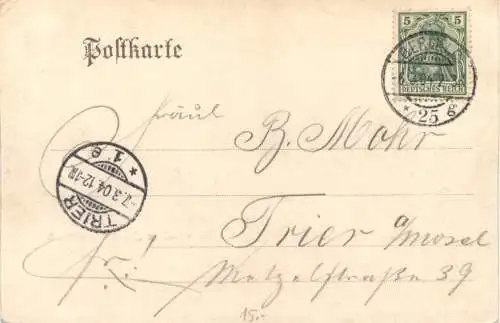 Postkarte
5 5
DEUTSCHES REICH
BERLIN
* 25 g
Fräul
B. Mohr
Trier a/Mosel
Metzelstraße 39
TRIER
-7.3.04.12-1N
* 1 e
15.-